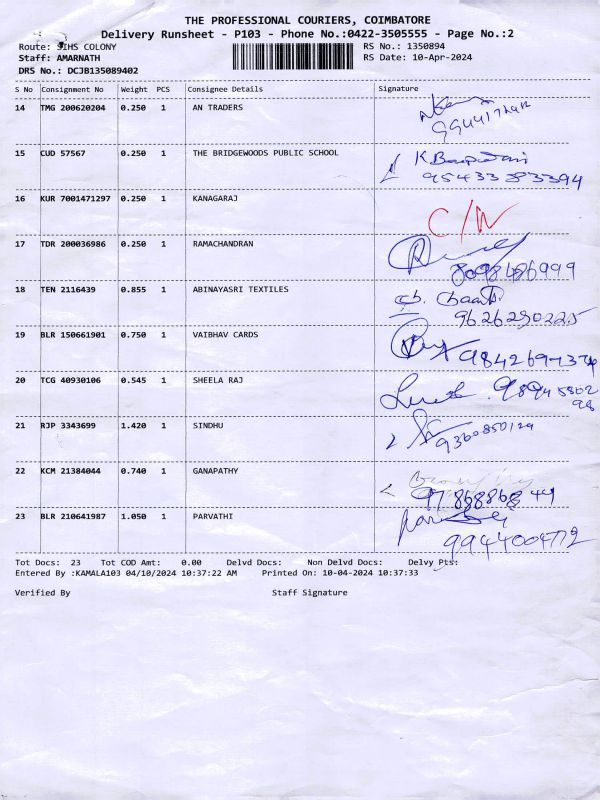 THE PROFESSIONAL COURIERS, COIMBATORE
Delivery Runsheet - P103 - Phone No.:0422-3505555 - Page No.:2
Route: SIHS COLONY RS No.: 1350894
Staff: AMARNATH RS Date: 10-Apr-2024
DRS No.: DCJB135089402
S No Consignment No Weight PCS Consignee Details Signature
14 TMG 200620204 0.250 1 AN TRADERS
15 CUD 57567 0.250 1 THE BRIDGEWOODS PUBLIC SCHOOL
9543383394
16 KUR 7001471297 0.250 1 KANAGARAJ C/N
17 TDR 200036986 0.250 1 RAMACHANDRAN
8098486999
18 TEN 2116439 0.855 1 ABINAYASRI TEXTILES
9626290225
19 BLR 150661901 0.750 1 VAIBHAV CARDS
20 TCG 40930106 0.545 1 SHEELA RAJ
21 RJP 3343699 1.420 1 SINDHU
9360850129
22 KCM 21384044 0.740 1 GANAPATHY
9786886844
23 BLR 210641987 1.050 1 PARVATHI
9944004772
Tot Docs: 23 Tot COD Amt: 0.00 Delvd Docs: Non Delvd Docs: Delvy Pts:
Entered By :KAMALA103 04/10/2024 10:37:22 AM Printed On: 10-04-2024 10:37:33
Verified By Staff Signature